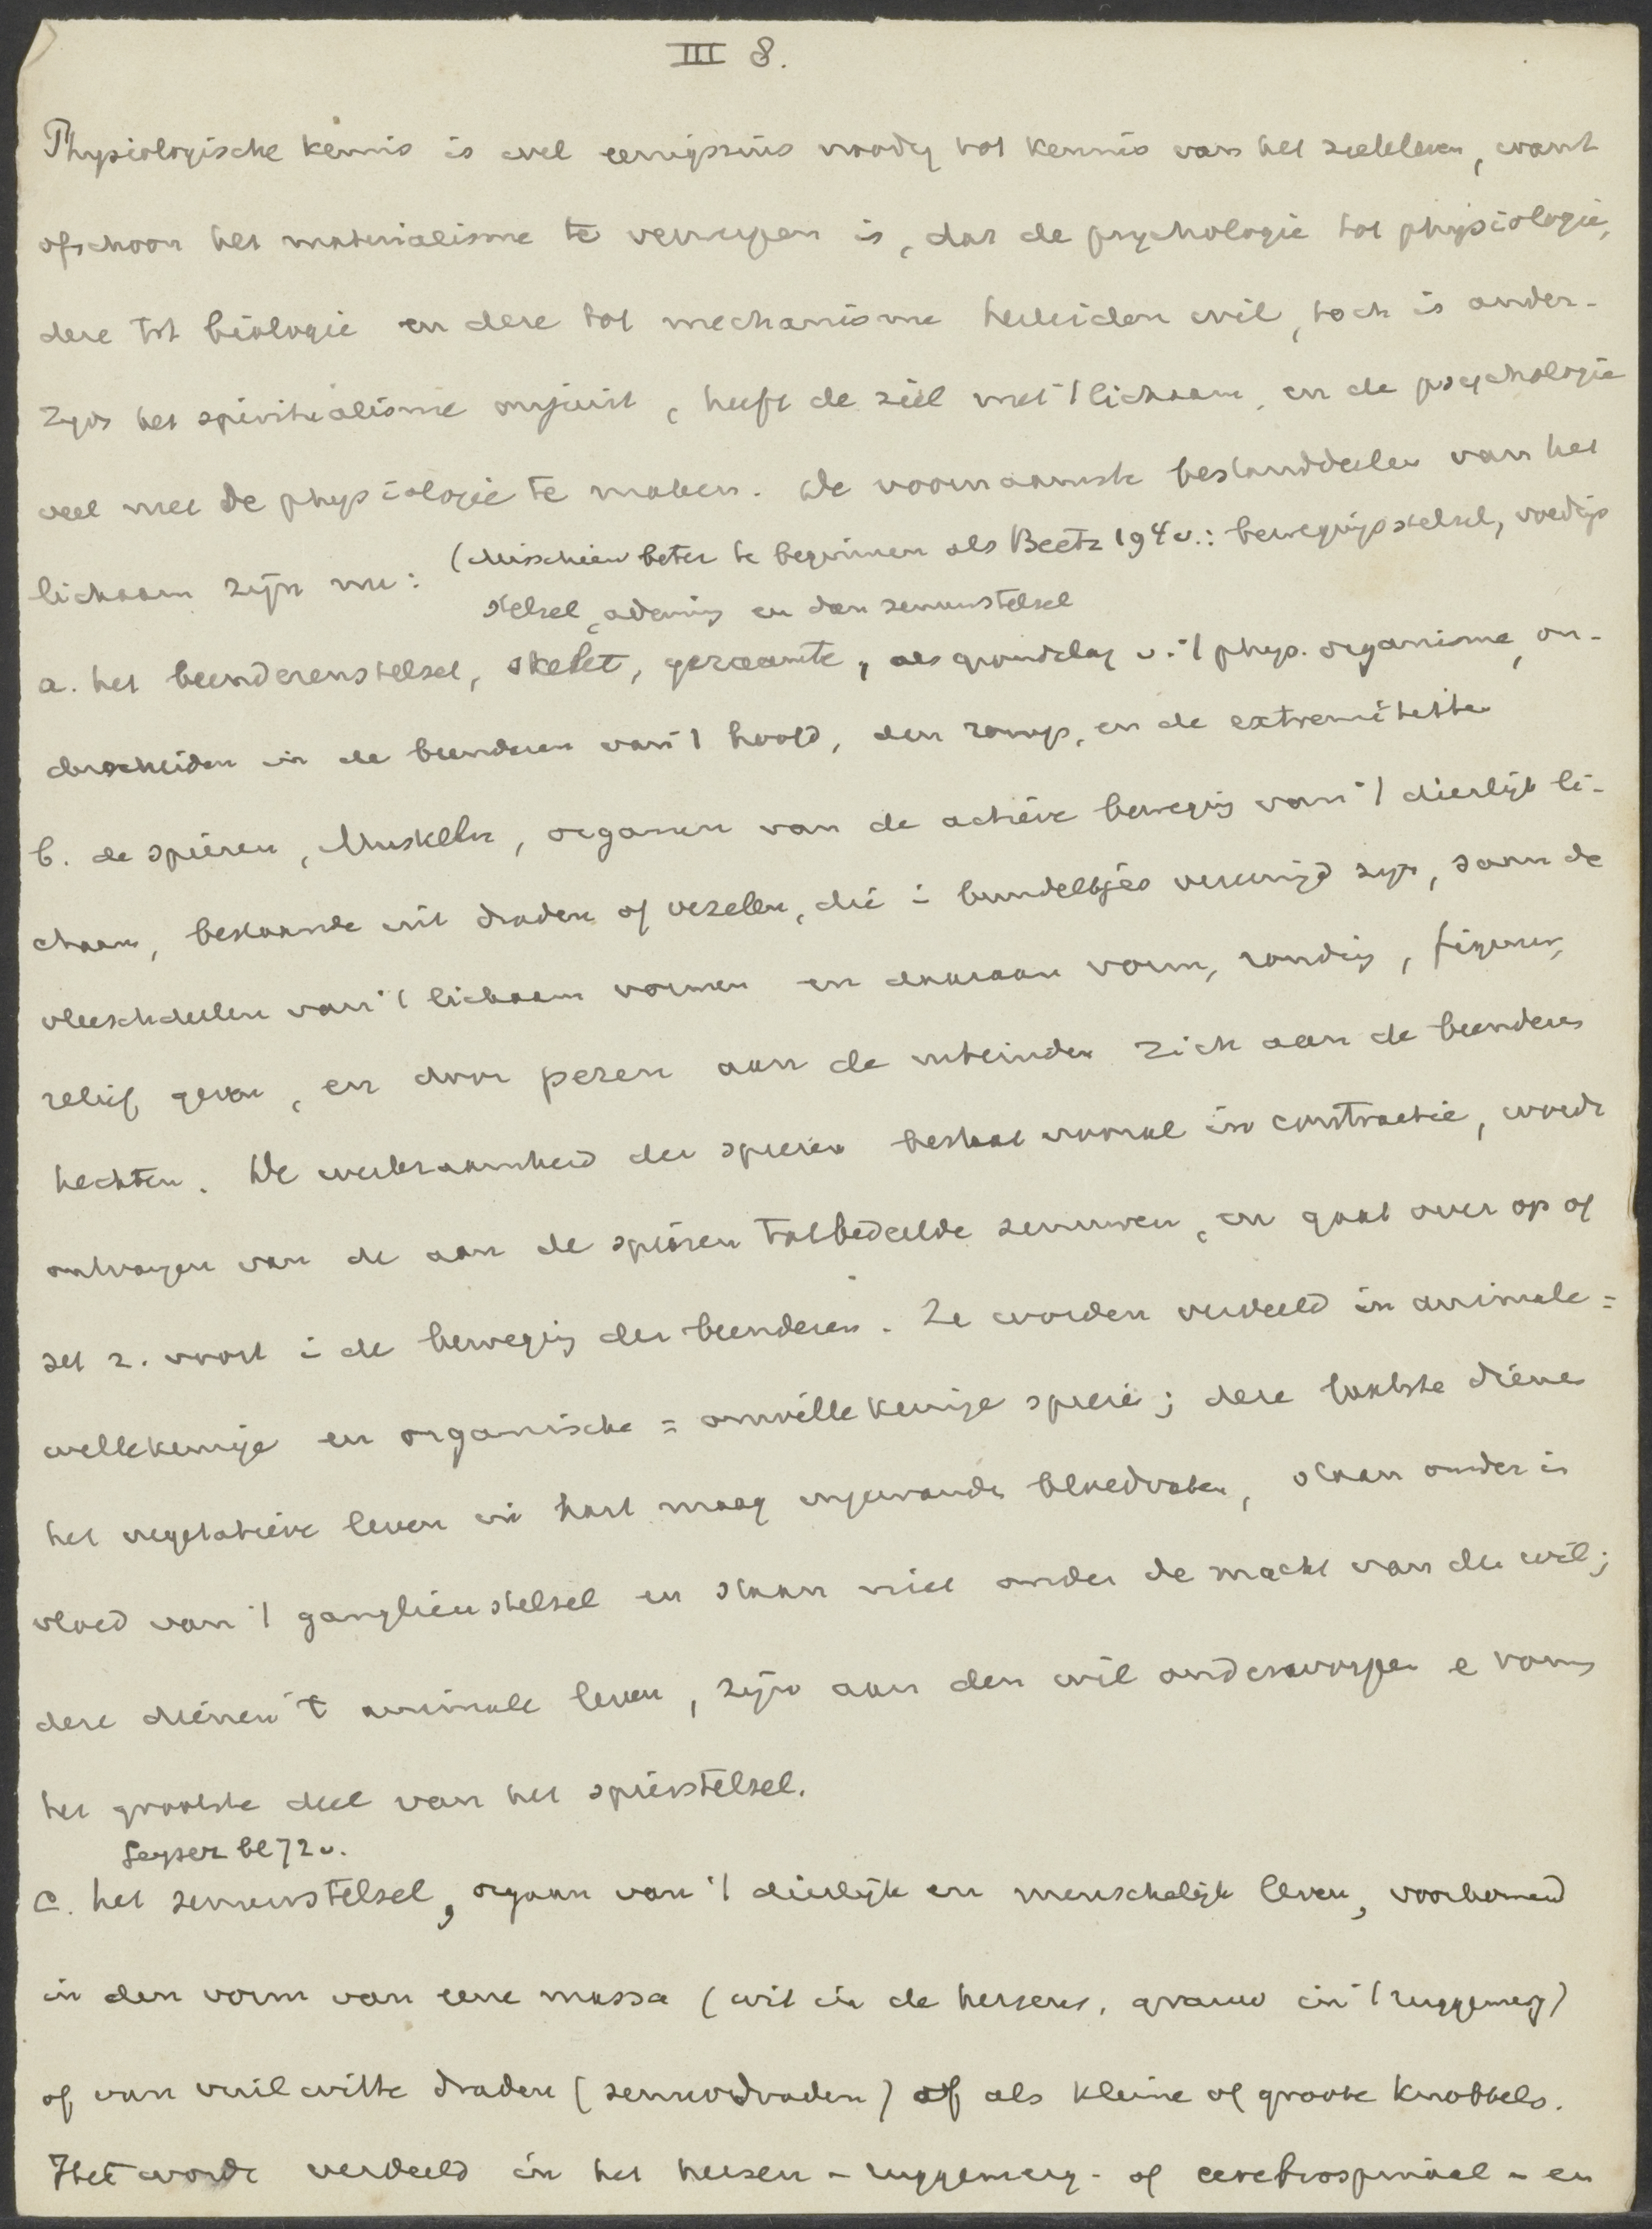 III 8.
Physiologische kennis is wel eenigszins noodig tot kennis van het zieleleven, want
ofschoon het materialisme te verwerpen is, dat de psychologie tot physiologie,
deze tot biologie en deze tot mechanisme herleiden wil, toch is ander-
zijds het spiritualisme onjuist, heeft de ziel met 't lichaam, en de psychologie
veel met de physiologie te maken. De voornaamste bestanddeelen van het
(Misschien beter te beginnen als Beetz 194 v.: bewegingsstelsel, voedings
lichaam zijn nu:
stelsel, ademing en dan zenuwstelsel
a. het beenderenstelsel, skelet, geraamte, als grondslag v. 't phys. organisme, on-
derscheiden in de beenderen van 't hoofd, den romp, en de extremiteiten
b. de spieren, Muskeln, organen van de actieve beweging van 't dierlijk li-
chaam, bestaande uit draden of vezelen, die i bundeltjes vereenigd zijn, saam de
vleeschdeelen van 't lichaam vormen en daaraan vorm, ronding, figuur,
relief geven, en door pezen aan de uiteinden zich aan de beenderen
hechten. De werkzaamheid der spieren bestaat vooral in contractie, wordt
ontvangen van de aan de spieren toebedeelde zenuwen, en gaat over op of
zet z. voort i de beweging der beenderen. Ze worden verdeeld in animale =
willekeurige en organische = onwillekeurige spieren; deze laatste dienen
het vegetatieve leven in hart maag ingewanden bloedvaten, staan onder in
vloed van 't ganglienstelsel en staan niet onder de macht van den wil;
deze dienen 't animale leven, zijn aan den wil onderworpen e vormen
het grootste deel van het spierstelsel.
Geyser bl 72 v.
c. het zenuwstelsel, orgaan van 't dierlijk en menschelijk leven, voorkomend
in den vorm van eene massa (wit in de hersens, grauw in 't ruggemerg)
of van vuilwitte draden (zenuwdraden) of als kleine of groote knobbels.
Het wordt verdeeld in het hersen- ruggemerg- of cerebrospinaal- en